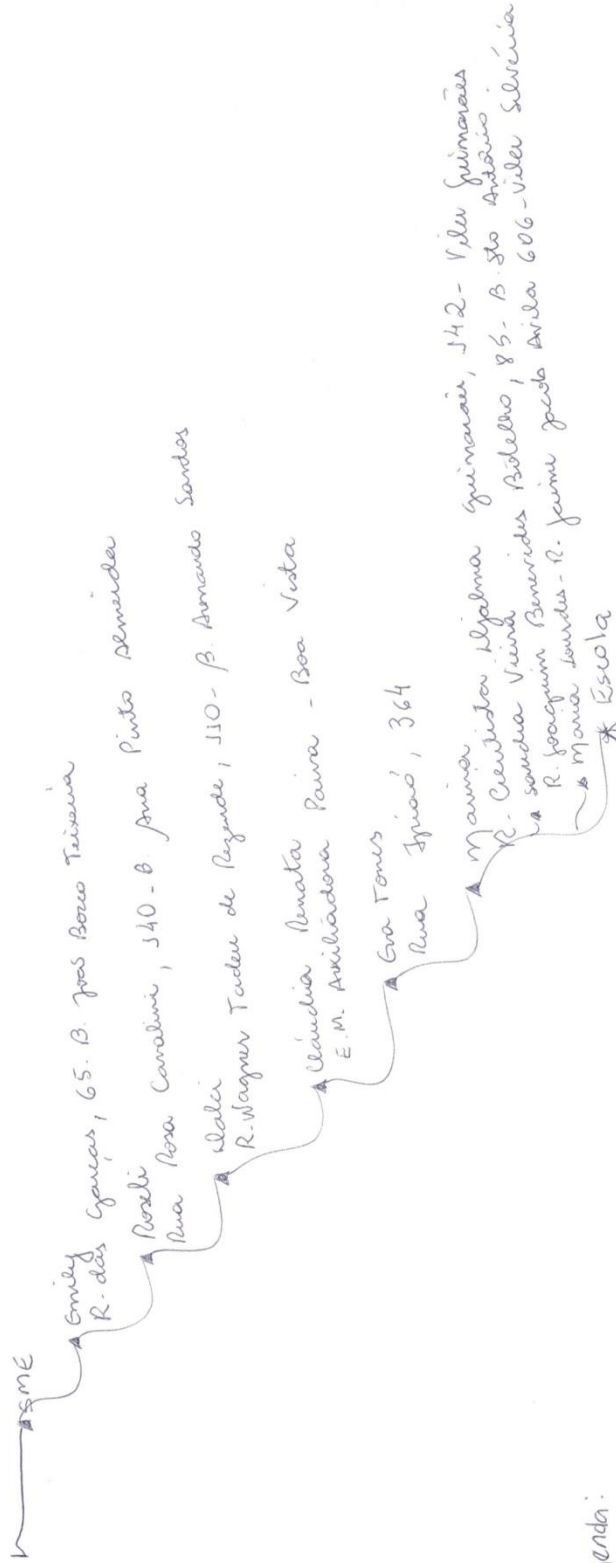 SME
Emily
R. das Garças, 65. B. João Bosco Teixeira
Roseli
Rua Rosa Cavalini, 140 - B. Ana Pinto Almeida
Dalci
R. Wagner Tadeu de Rezende, 110 - B. Armando Santos
Cláudia Renata
E.M. Auxiliadora Paiva - Boa Vista
Eva Torres
Rua, 364
Marina
R. Cientista Djalma Guimarães, 142 - Vila Guimarães
Sandra Vieira
R. Joaquim Benevides Botelho, 85 - B. Sto Antônio
Maria Lourdes - R. Jaime Jacob Avila 606 - Vila Silvéria
Escola